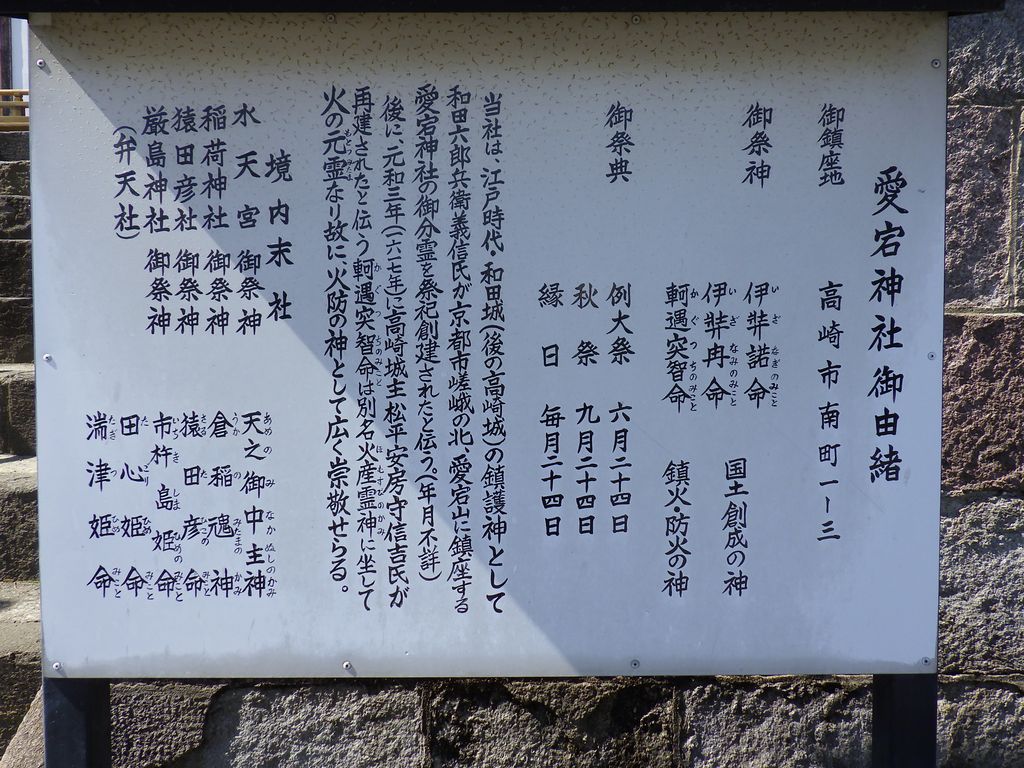 愛宕神社御由緒
御鎮座地 高崎市南町一ー三
御祭神 伊弉諾命
伊弉冉命 国土創成の神
軻遇突智命 鎮火・防火の神
御祭典 例大祭 六月二十四日
秋祭 九月二十四日
縁日 毎月二十四日
当社は、江戸時代・和田城(後の高崎城)の鎮護神として
和田六郎兵衛義信氏が京都市嵯峨の北、愛宕山に鎮座する
愛宕神社の御分霊を祭祀創建されたと伝う。(年月不詳)
後に、元和三年(一六一七年)に高崎城主松平安房守信吉氏が
再建されたと伝う軻遇突智命は別名火産霊神に坐して
火の元霊なり故に、火防の神として広く崇敬せらる。
境内末社
水天宮 御祭神 天之御中主神
稲荷神社 御祭神 倉稲魂神
猿田彦社 御祭神 猿田彦命
厳島神社 御祭神 市杵島姫命
(弁天社) 田心姫命
湍津姫命